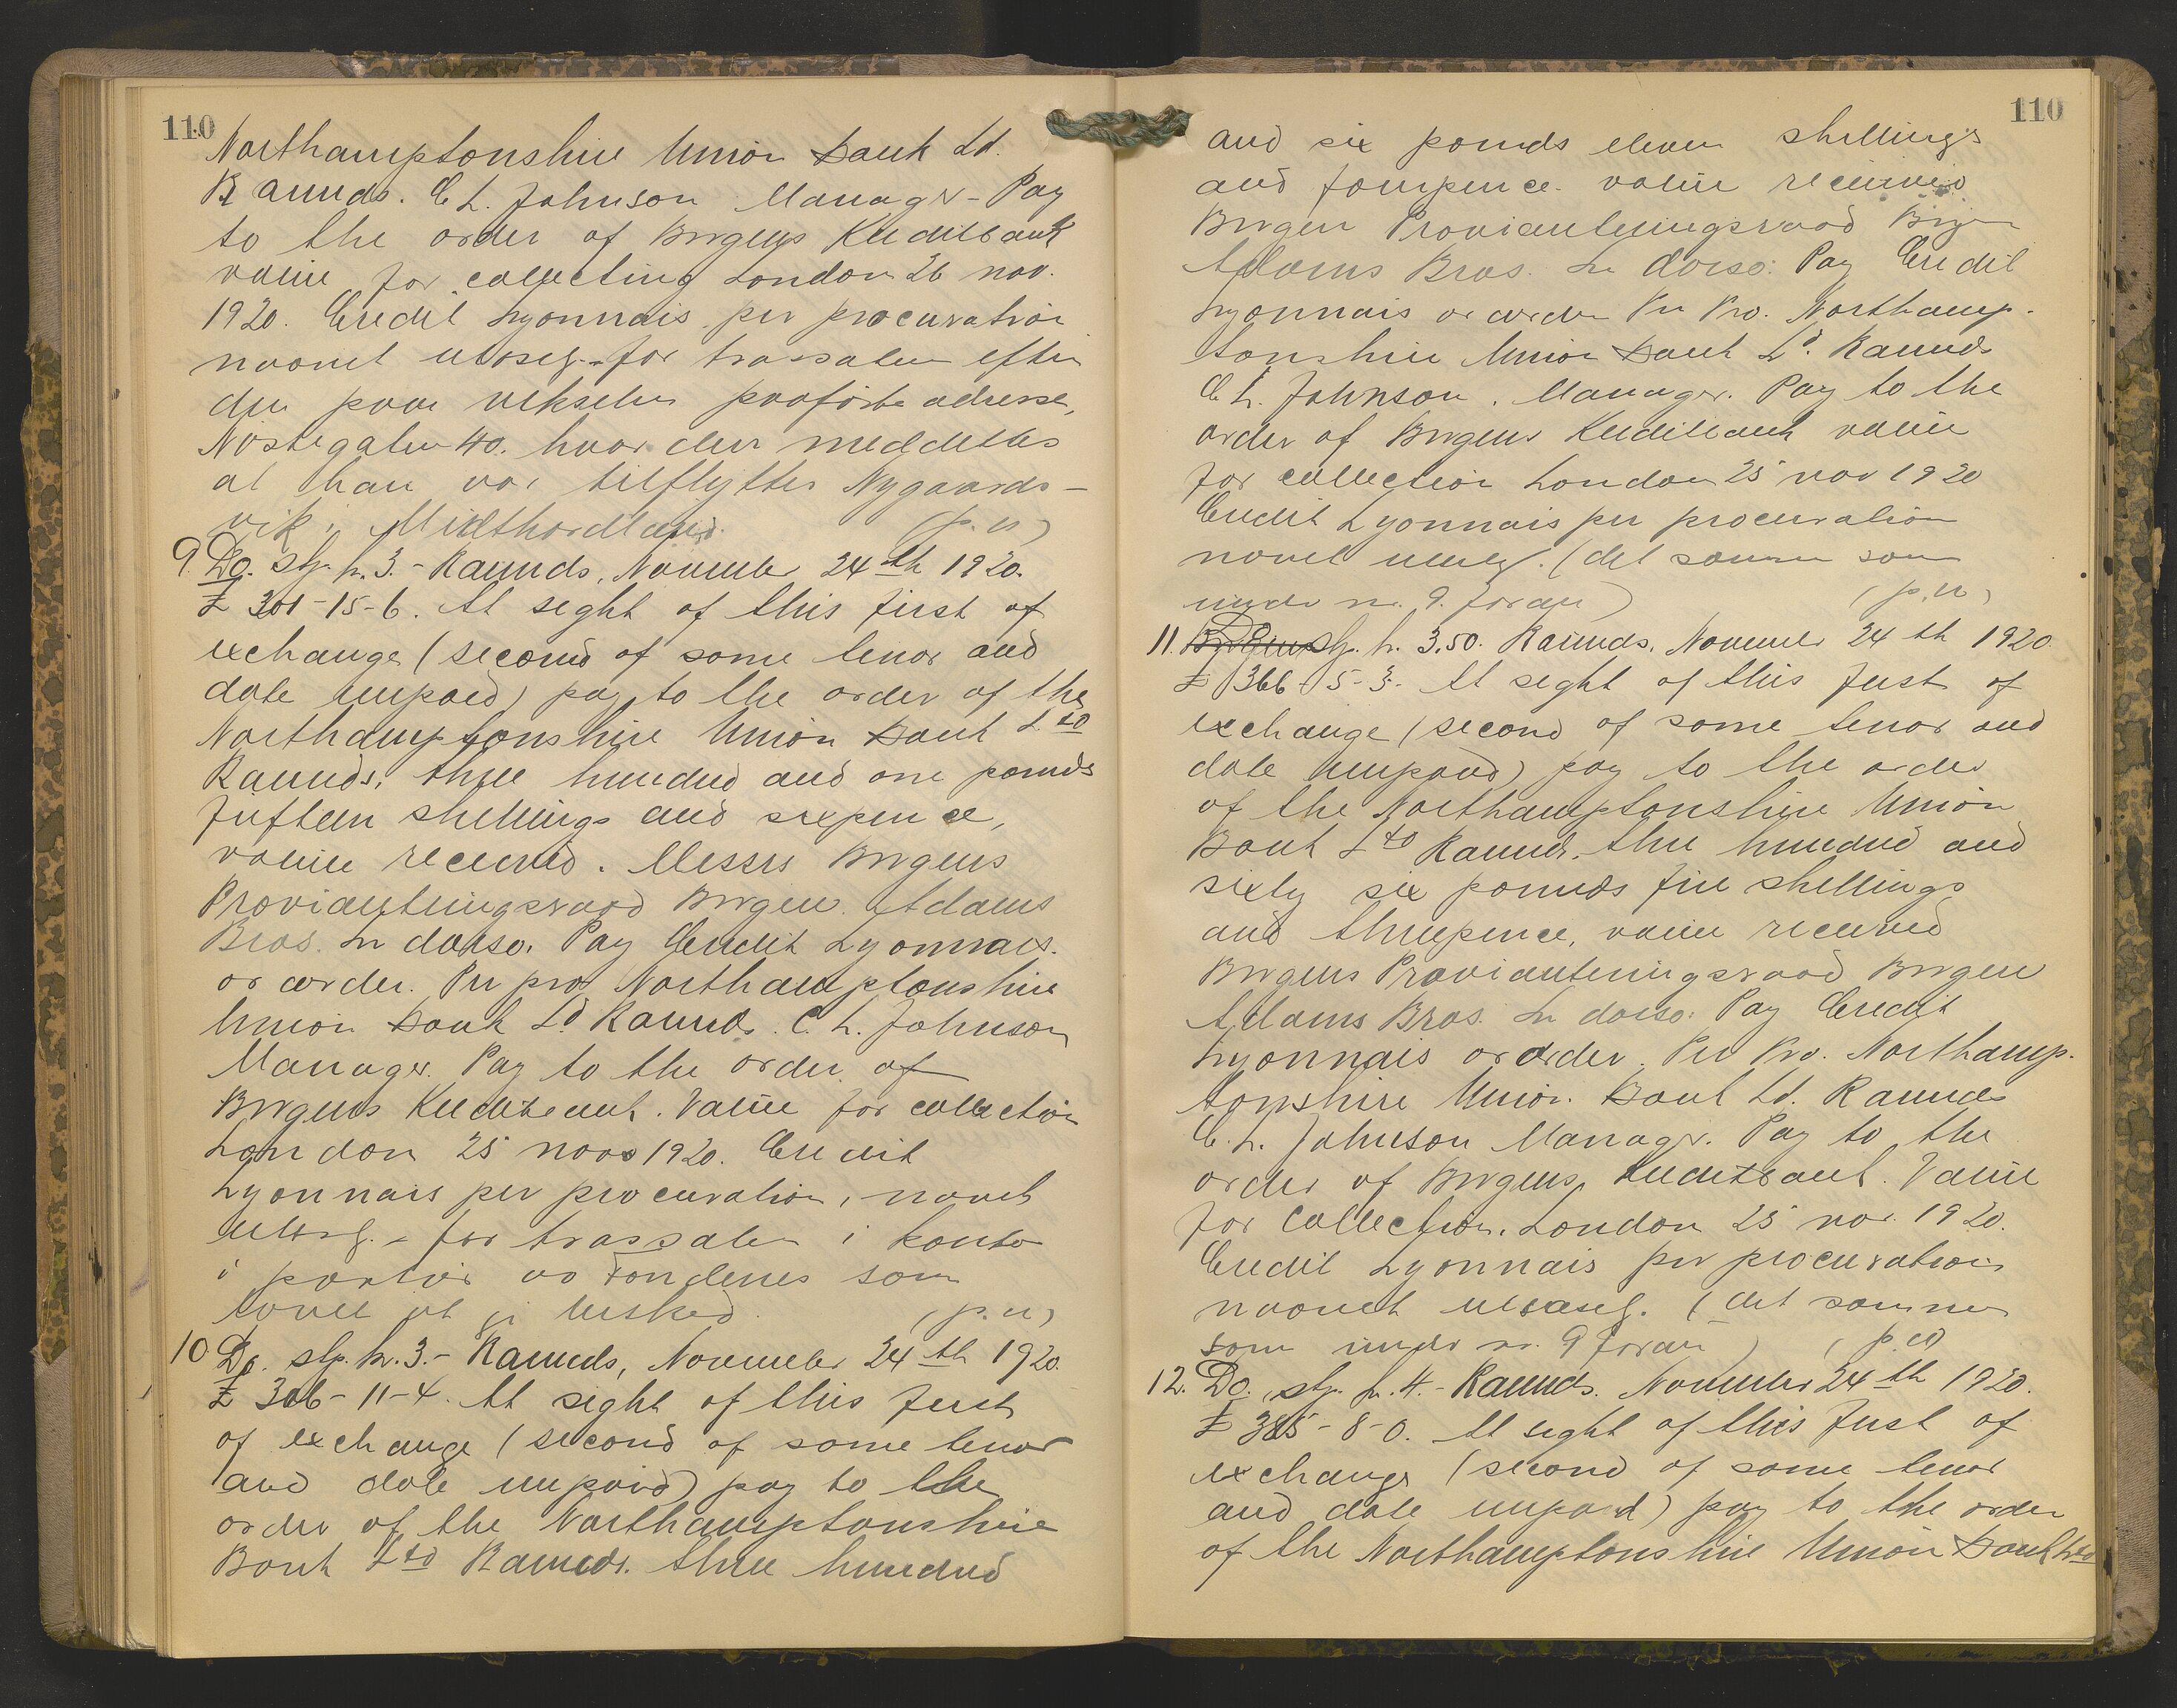 110
Northamptonshire Union Bank Ld.
Raunds. C L. Johnson Manager - Pay
to the order of Bergens Kreditbank
value for collecting London 26 nov.
1920. Credit Lyonnais per procuration
novnet utvexl. for trassaten efter
den paa vekselen paaførte adresse,
Nøstegaten 40. hvor der meddeltes
at han var tilflyttet Nygaards-
vik i Midthordland. (p.n)
9. Do. stp. kr. 3.- Raunds, November 24th 1920.
£ 301-15-6. At sight of this first of
exchange (second of same tenor and
date unpaid) pay to the order of the
Northamptonshire Union Bank Ltd
Raunds, three hundred and one pounds
fifteen shillings and sixpence,
value received. Messrs Bergens
Provianteringsraad Bergen. Adams
Bros. In dorso. Pay Credit Lyonnais.
or order. Per pro Northamptonshire
Union Bank Ld Raunds. C. L. Johnson
Manager. Pay to the order of
Bergens Kreditbank. Value for collection
London 25 nov 1920. Credit
Lyonnais per procuration, novnet
for trassaten i kontor
i
(p.n)
10 Do. stp. kr. 3.- Raunds, November 24th 1920.
£ 306-11-4. At sight of this first
of exchange (second of same tenor
and date unpaid) pay to the
order of the Northamptonshire
Bank Ltd Raunds. three hundred
110
and six pounds eleven shillings
and fourpence. value received
Bergen Provianteringsraad Bergen
Adams Bros. In dorso: Pay Credit
Lyonnais or order Per Pro. Northamp-
tonshire Union Bank Ld. Raunds
C L. Johnson. Manager. Pay to the
order of Bergens Kreditbank value
for collection London 25 nov 1920
Credit Lyonnais per procuration
(det samme som
under nr. 9. foran) (p.n)
11. stp. kr. 3.50. Raunds. November 24th 1920.
£ 366-5-3. At sight of this first of
exchange (second of same tenor and
date unpaid) pay to the order
of the Northamptonshire Union
Bank Ltd Raunds. three hundred and
sixty six pounds five shellings
and threepence, value received
Bergens Provianteringsraad Bergen
Adams Bros. In dorso: Pay Credit
Lyonnais or order. Per Pro. Northamp-
tonshire Union Bank Ld. Raunds
C. L. Johnson Manager. Pay to the
order of Bergens Kreditbank. Value
for Collection. London 25 nov. 1920.
Credit Lyonnais per procuration
(det samme
som under nr. 9 foran) (p.n)
12. Do. stp. kr. 4.- Raunds. November 24th 1920.
£ 385-8-0. At sight of this first of
exchange (second of same tenor
and date unpaid) pay to the order
of the Northamptonshire Union Bank Ltd